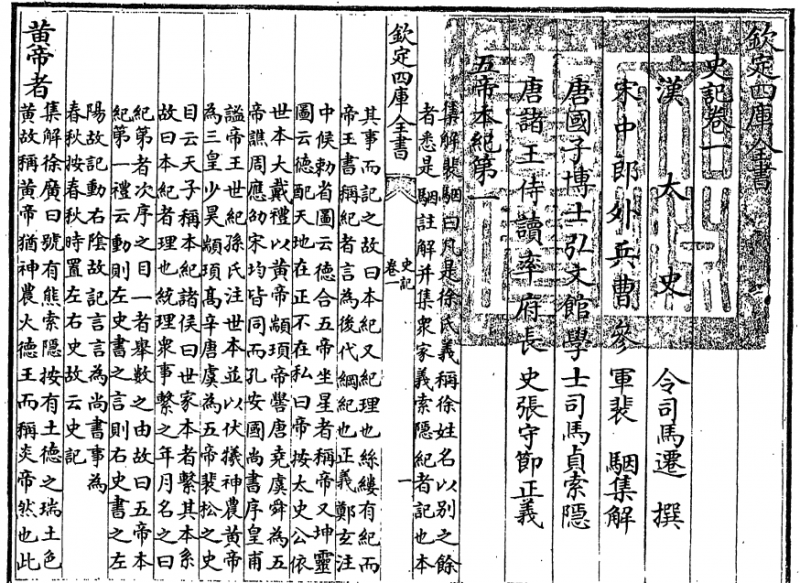 欽定四庫全書
史記卷一
漢太史令司馬遷撰
宋中郎外兵曹參軍裴駰集解
唐國子博士弘文館學士司馬貞索隱
唐諸王侍讀率府長史張守節正義
五帝本紀第一
集解裴駰曰凡是徐氏義稱徐姓名以別之餘
者悉是駰註解并集衆家義索隱紀者記也本
欽定四庫全書
史記
卷一
一
其事而記之故曰本紀又紀理也絲縷有紀而
帝王書稱紀者言為後代綱紀也正義鄭玄注
中候勅省圖云德合五帝坐星者稱帝又坤靈
圖云德配天地在正不在私曰帝按太史公依
世本大戴禮以黃帝顓頊帝嚳唐堯虞舜為五
帝譙周應劭宋均皆同而孔安國尚書序皇甫
謐帝王世紀孫氏注世本並以伏犧神農黃帝
為三皇少昊顓頊高辛唐虞為五帝裴松之史
目云天子稱本紀諸侯曰世家本者繫其本系
故曰本紀者理也統理衆事繫之年月名之曰
紀第者次序之目一者舉數之由故曰五帝本
紀第一禮云動則左史書之言則右史書之左
陽故記動右陰故記言言為尚書事為
春秋按春秋時置左右史故云史記
黃帝者
集解徐廣曰號有熊索隱按有土德之瑞土色
黃故稱黃帝猶神農火德王而稱炎帝然也此